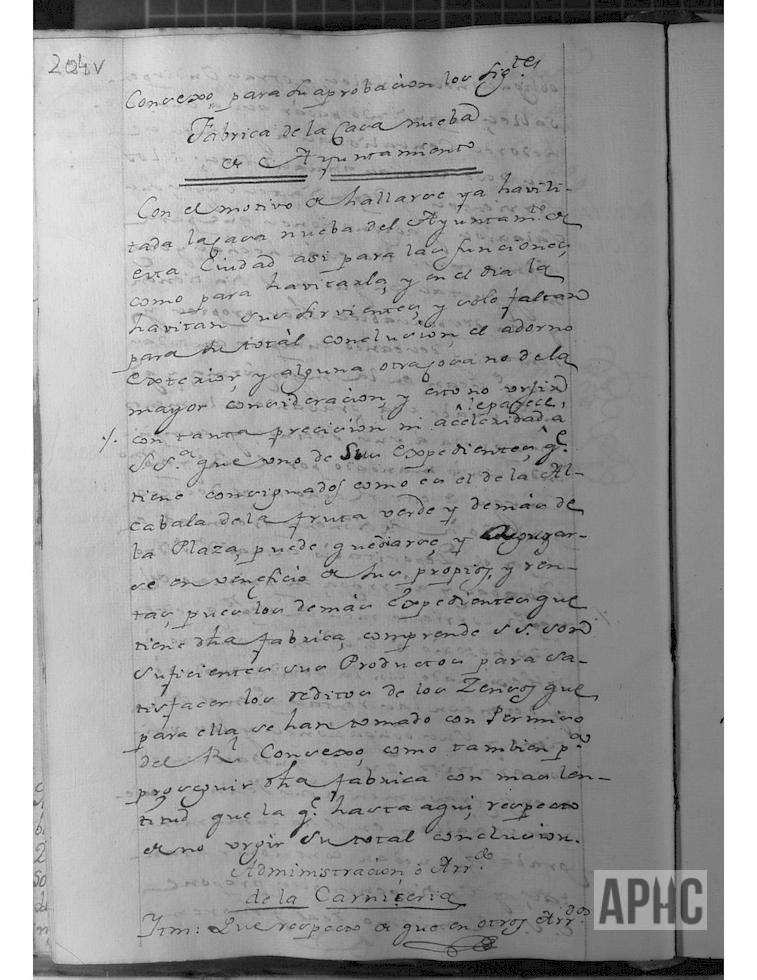 204v
Consexo, para su aprobacion los sig.tes
Fabrica de la Casa nueba
de el Ayuntamiento
Con el motivo de hallarse ya havili-
tada la casa nueba del Ayuntam.to de
esta Ciudad asi para las funciones,
como para havitarla, y en el dia la
havitan sus sirvientes, y solo faltan
para su total conclusion, el adorno
exterior, y alguna otra cosa no de la
mayor consideracion, y esto no urjir
con tanta precision ni aceleridad, le parece, a
S.S.a que uno de sus expedientes, q.e
tiene consignados como es el de la Al-
cabala de la fruta verde y demas de
la Plaza, puede quediarse, y
se en veneficio de sus propios, y ren-
tas, pues los demas expedientes que
tiene dha fabrica, comprende S.S. son
suficientes sus Productos para sa-
tisfacer los reditos de los Zensos que
para ella se han tomado con Permiso
del R.l Consexo, como tambien p.a
proseguir dha fabrica con mas len-
titud que la q.e hasta aqui, respecto
de no urgir su total conclusion.
Administracion, ó Arr.do
de la Carniceria
Ytm: Que respecto de que en otros Arr.dos
APHC